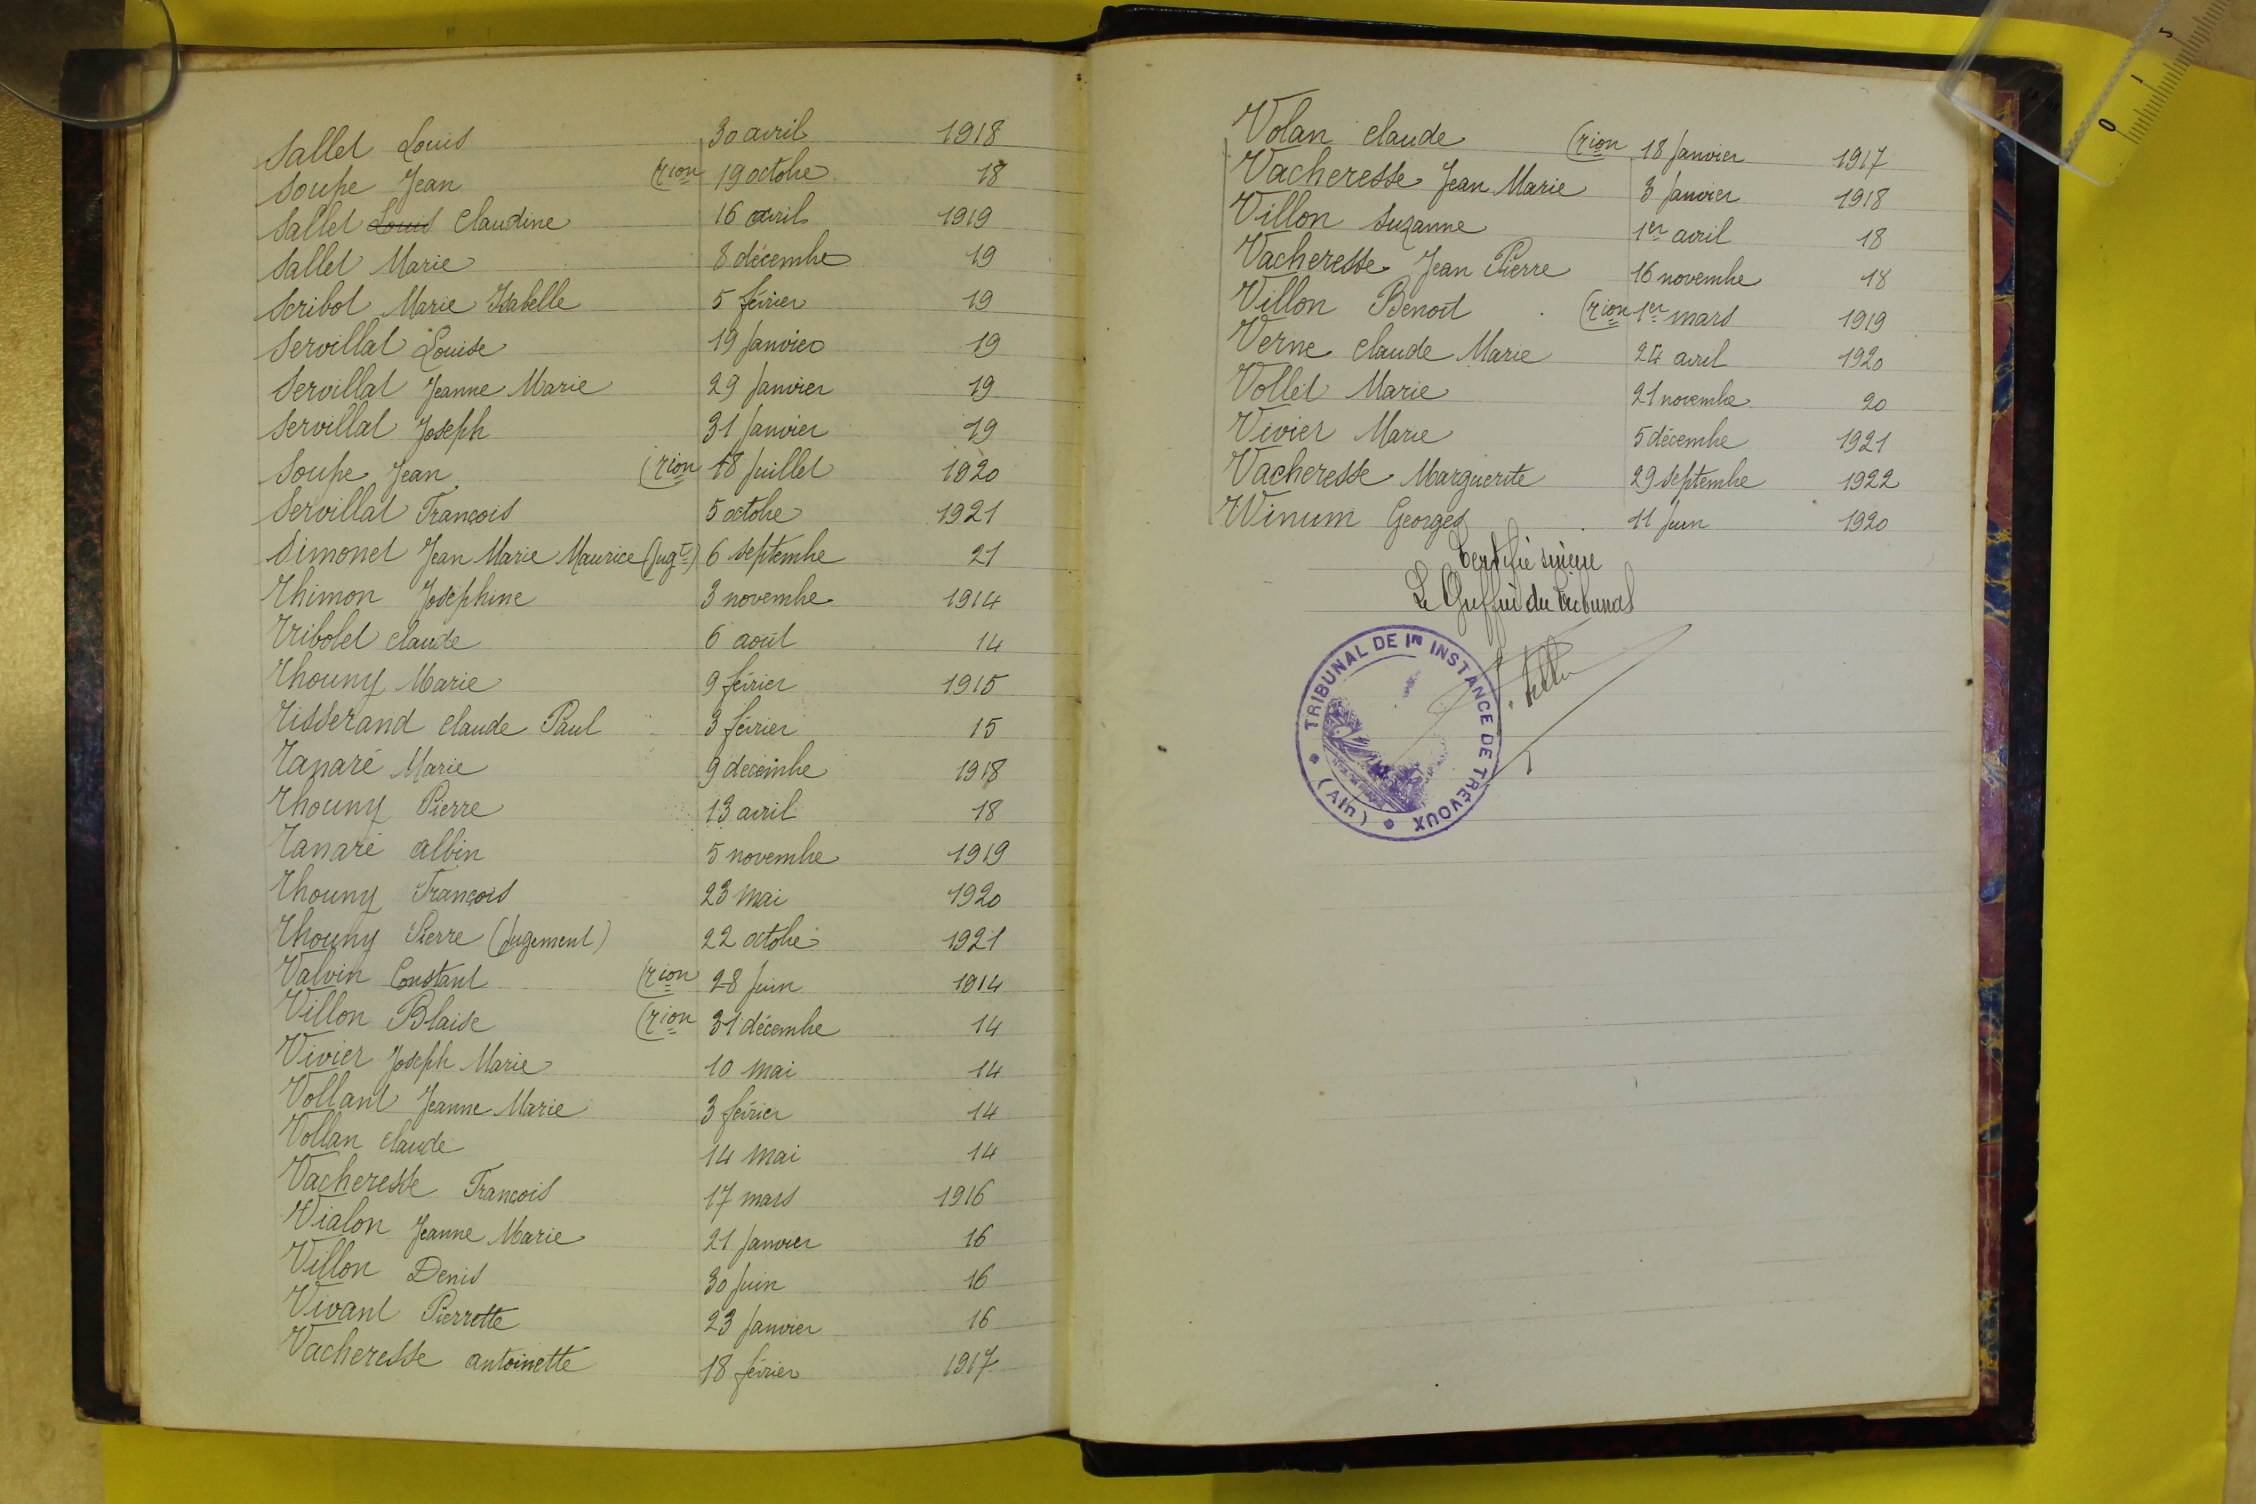 Sallet Louis 30 avril 1918
Soupe Jean (rion 19 octobre 18
Sallet Louis Claudine 16 avril 1919
Sallet Marie 8 décembre 19
Scribot Marie Isabelle 5 février 19
Servillat Louise 19 janvier 19
Servillat Jeanne Marie 29 janvier 19
Servillat Joseph 31 janvier 19
Soupe Jean (rion 18 juillet 1920
Servillat François 5 octobre 1921
Simonet Jean Marie Maurice (jugt) 6 septembre 21
Thimon Joséphine 3 novembre 1914
Tribolet Claude 6 août 14
Thouny Marie 9 février 1915
Tisserand Claude Paul 3 février 15
Tanaré Marie 9 décembre 1918
Thouny Pierre 13 avril 18
Tanaré Albin 5 novembre 1919
Thouny François 23 mai 1920
Thouny Pierre (jugement) 22 octobre 1921
Valvin Constant (rion 28 juin 1914
Villon Blaise (rion 31 décembre 14
Vivier Joseph Marie 10 mai 14
Vollant Jeanne Marie 3 février 14
Vollan Claude 14 mai 14
Vacheresse François 17 mars 1916
Vialon Jeanne Marie 21 janvier 16
Villon Denis 30 juin 16
Vivant Pierrette 23 janvier 16
Vacheresse Antoinette 18 février 1917
Volan Claude (rion 18 janvier 1917
Vacheresse Jean Marie 3 janvier 1918
Villon Suzanne 1er avril 18
Vacheresse Jean Pierre 16 novembre 18
Villon Benoit (rion 1er mars 1919
Verne Claude Marie 24 avril 1920
Vollet Marie 21 novembre 20
Vivier Marie 5 décembre 1921
Vacheresse Marguerite 29 septembre 1922
Winum Georges 11 juin 1920
Certifié sincère
Le Greffier du Tribunal
TRIBUNAL DE 1re INSTANCE DE TRÉVOUX
(Ain)
0 1 5